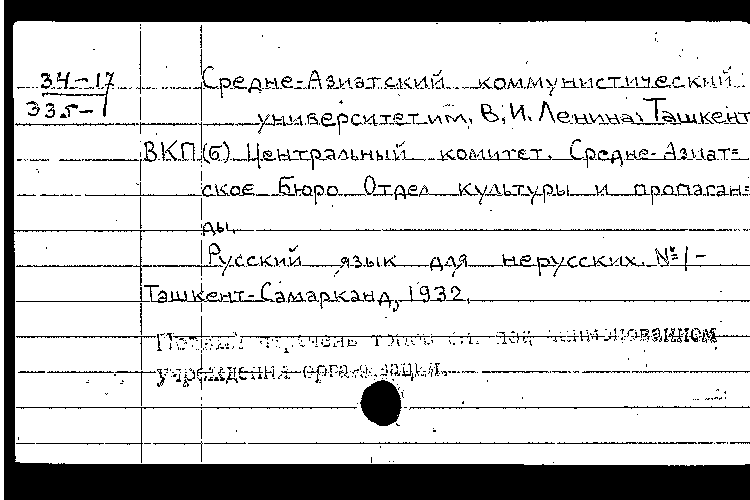 34-17 Средне-Азиатский коммунистический
335-1 университет им. В.И. Ленина. Ташкент
ВКП(б) Центральный комитет. Средне-Азиат=
ское Бюро Отдел культуры и пропаган=
ды.
Русский язык для нерусских. № 1-
Ташкент-Самарканд, 1932.
Полный перечень томов см. под наименованием
учреждения организации.